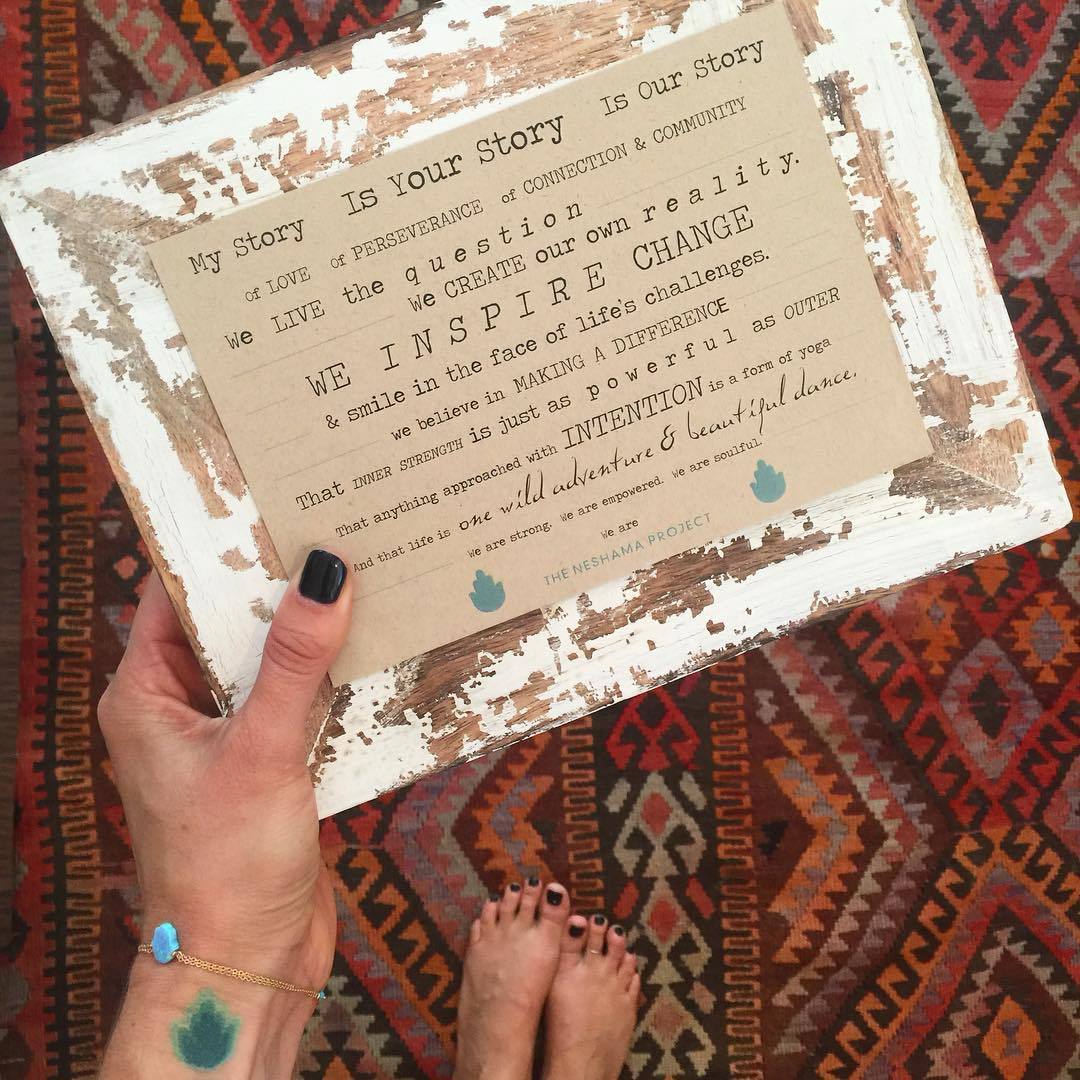 My Story Is Your Story Is Our Story
of LOVE of PERSEVERANCE of CONNECTION & COMMUNITY
We LIVE the question
We CREATE our own reality.
WE INSPIRE CHANGE
& smile in the face of life's challenges.
We believe in MAKING A DIFFERENCE
That INNER STRENGTH is just as powerful as OUTER
That anything approached with INTENTION is a form of yoga
And that life is one wild adventure & beautiful dance.
We are strong. We are empowered. We are soulful.
We are
THE NESHAMA PROJECT